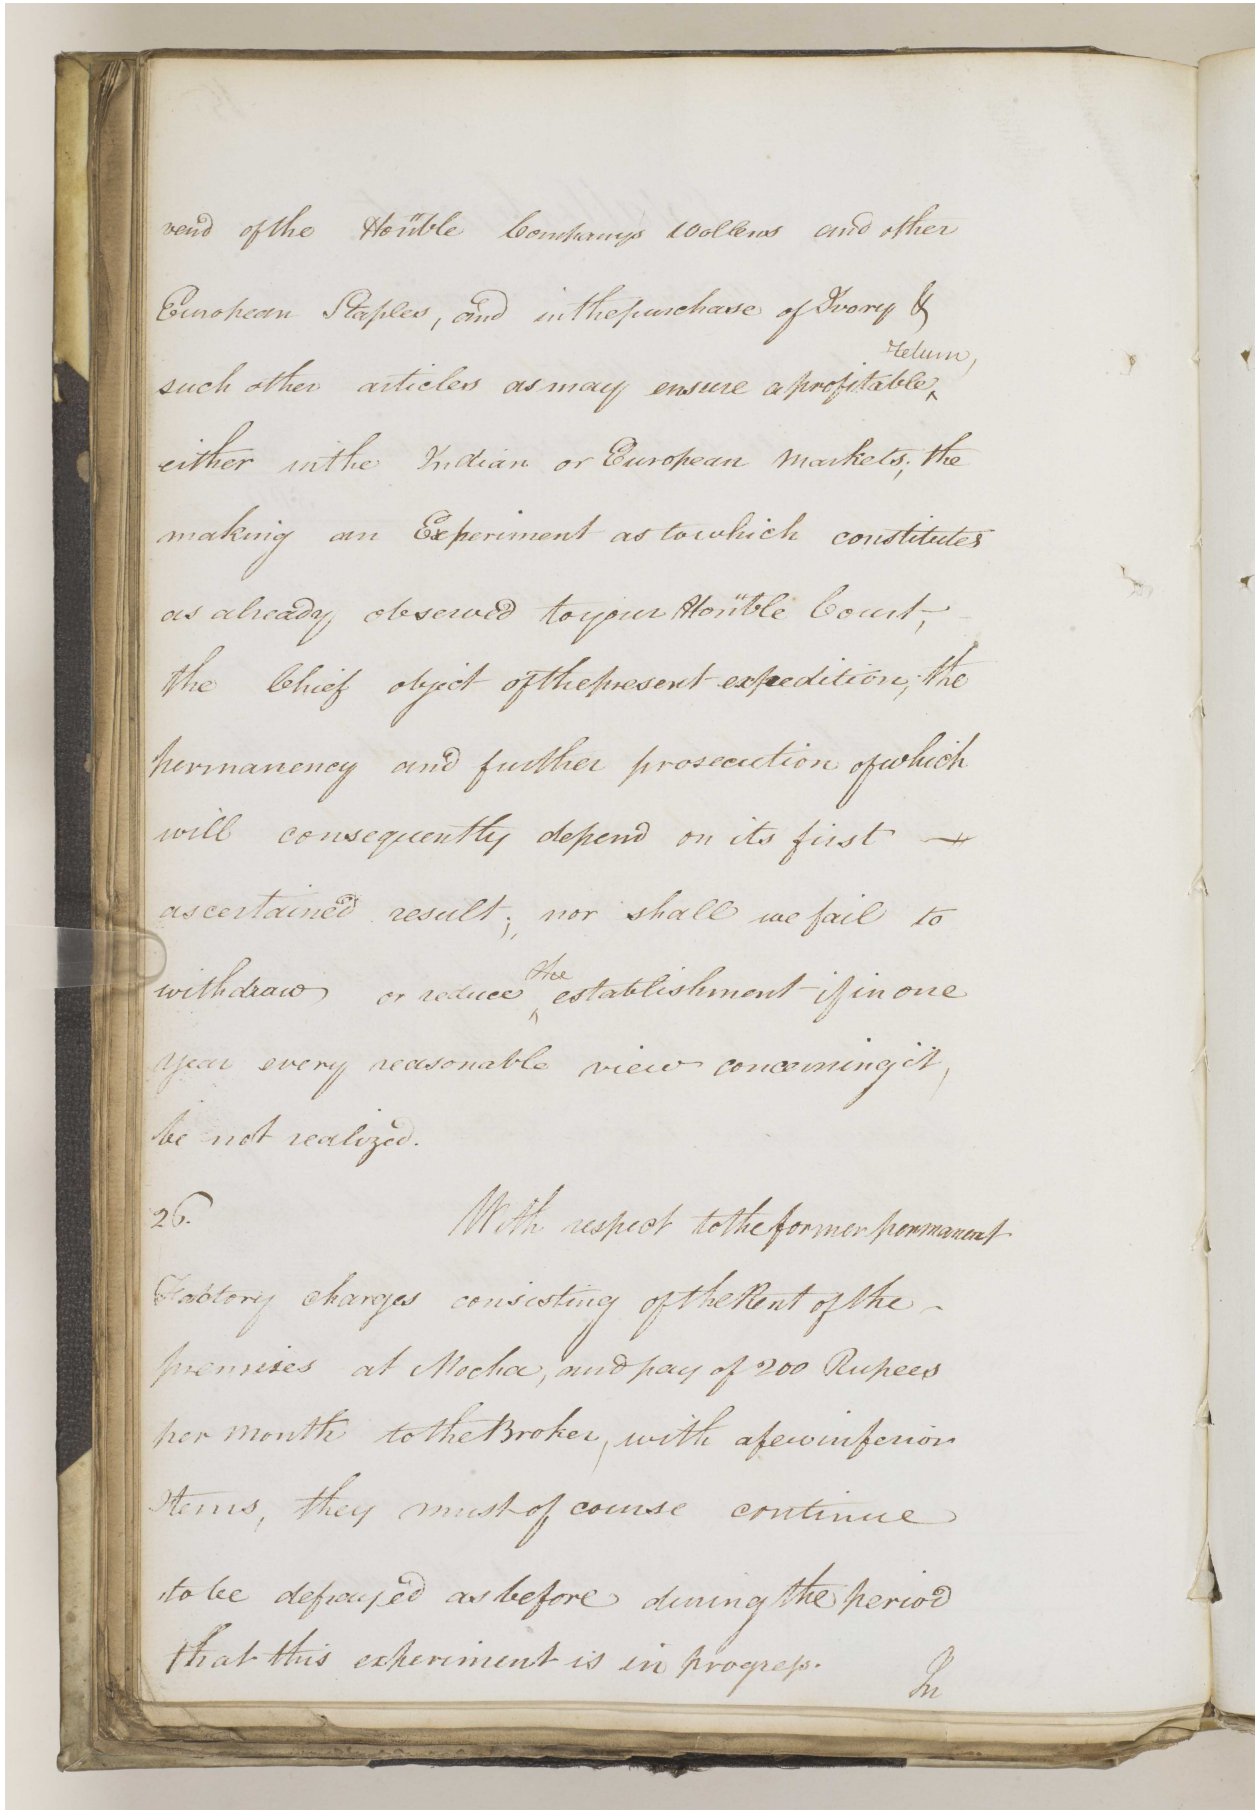 vend of the Hon̎ble Company's Wollens and other
European Staples, and in the purchase of Ivory &
such other articles as may ensure a profitable ^return,
either in the Indian or European Markets; the
making an Experiment as to which constitutes
as already observed to your Hon̎ble Court,
the Chief object of the present expedition; the
permanency and further prosecution of which
will consequently depend on its first —
ascertained result; nor shall we fail to
withdraw or reduce ^the establishment if in one
year every reasonable view concerning it,
be not realized.
26. With respect to the former permanent
Factory charges consisting of the Rent of the
premises at Mocha, and pay of 200 Rupees
per month to the Broker, with a few inferior
Items, they must of course continue
to be defrayed as before during the period
that this experiment is in progress.
In